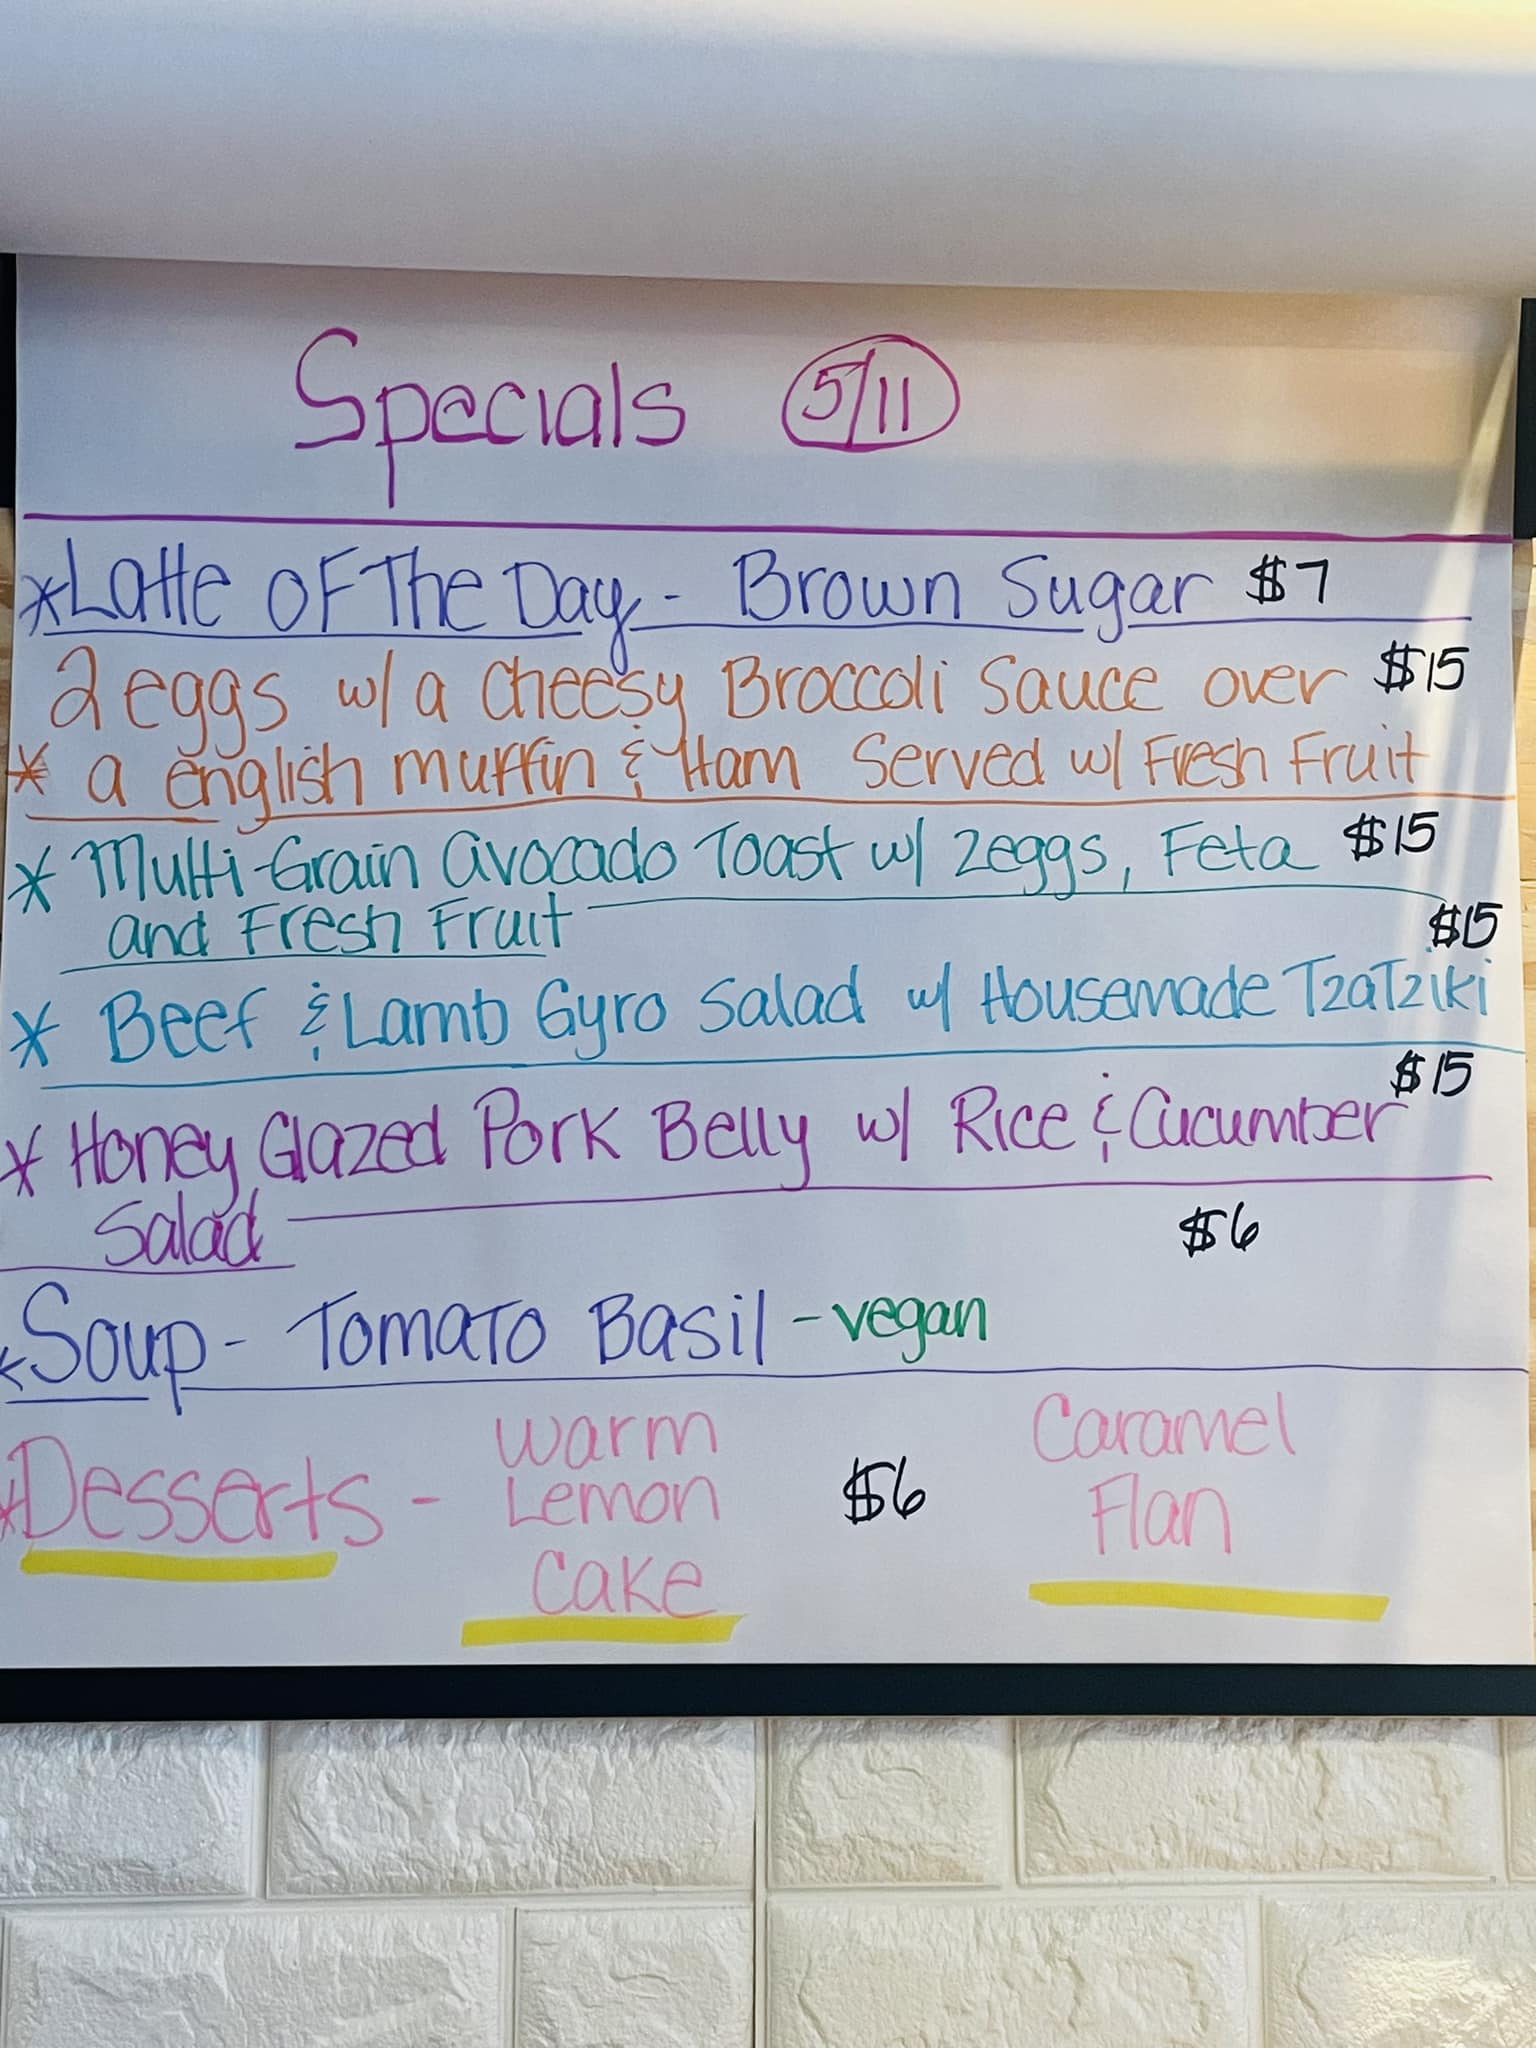 Specials 5/11
*Latte Of The Day - Brown Sugar $7
2 eggs w/ a Cheesy Broccoli Sauce over $15
* a english muffin & Ham Served w/ Fresh Fruit
* Multi-Grain Avocado Toast w/ 2 eggs, Feta $15
and Fresh Fruit
$15
* Beef & Lamb Gyro Salad w/ Housemade Tzatziki
$15
* Honey Glazed Pork Belly w/ Rice & Cucumber
Salad
$6
*Soup - Tomato Basil - vegan
*Desserts - Warm
Lemon
Cake
$6
Caramel
Flan